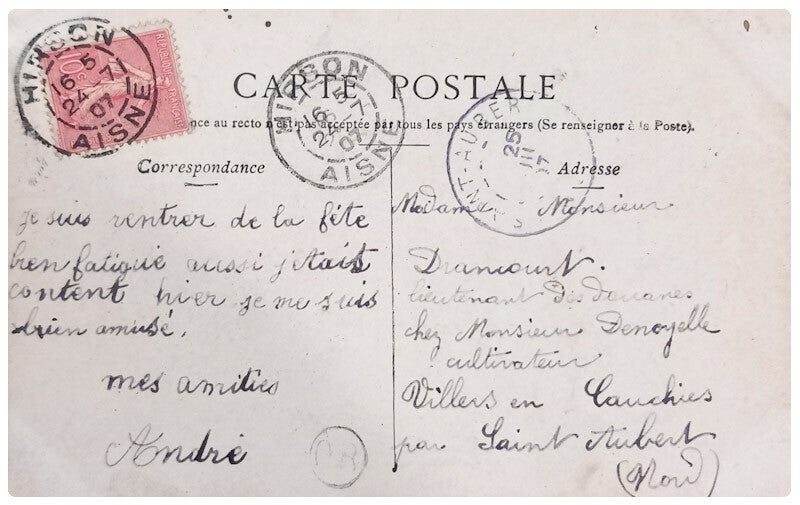 HIRSON
16 5
24 7
07
AISNE
RÉPUBLIQUE FRANÇAISE
10c
HIRSON
16 5
7
07
AISNE
25
III
CARTE POSTALE
nce au recto n'est pas acceptée par tous les pays étrangers (Se renseigner à la Poste).
Correspondance
Je suis rentrer de la fête
bien fatigué aussi jétais
content hier je me suis
bien amusé.
mes amitiés
André
Adresse
Madame Monsieur
Dramcourt.
lieutenant des douanes
chez Monsieur Denoyelle
cultivateur
Villers en Cauchies
par Saint Aubert
(Nord)